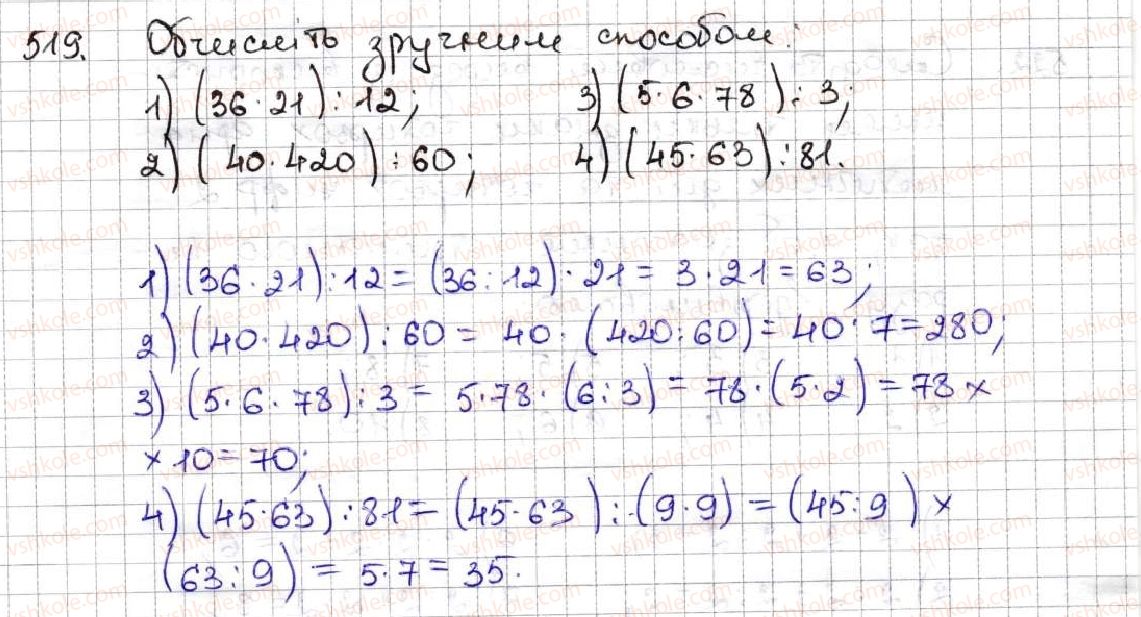 519. Обчисліть зручним способом:
1) (36·21):12; 3) (5·6·78):3;
2) (40·420):60; 4) (45·63):81.
1) (36·21):12 = (36:12)·21 = 3·21 = 63;
2) (40·420):60 = 40·(420:60) = 40·7 = 280;
3) (5·6·78):3 = 5·78·(6:3) = 78·(5·2) = 78 ×
× 10 = 70;
4) (45·63):81 = (45·63):(9·9) = (45:9) ×
(63:9) = 5·7 = 35.
vshkole.com